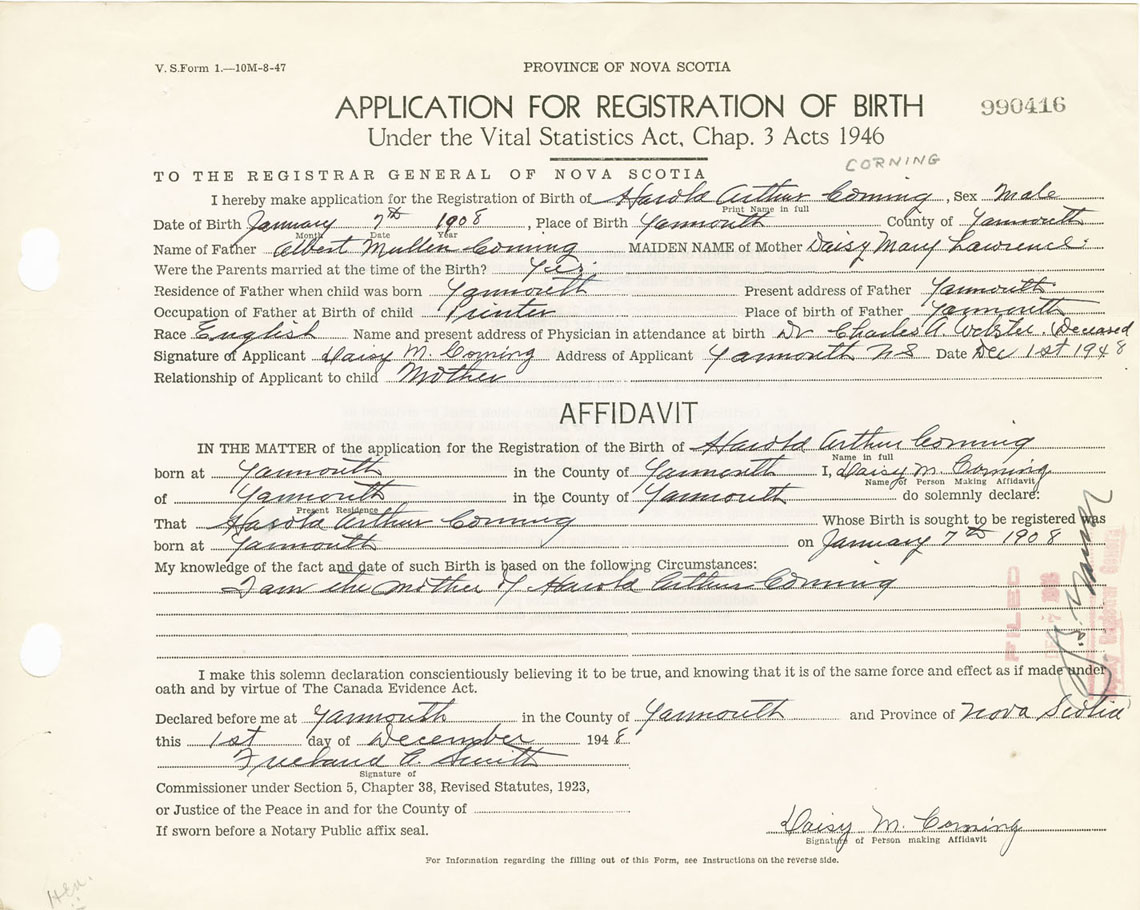 V. S.Form 1.—10M-8-47
PROVINCE OF NOVA SCOTIA
APPLICATION FOR REGISTRATION OF BIRTH
990416
Under the Vital Statistics Act, Chap. 3 Acts 1946
CORNING
TO THE REGISTRAR GENERAL OF NOVA SCOTIA
I hereby make application for the Registration of Birth of Harold Arthur Corning, Sex Male
Print Name in full
Date of Birth January 7th 1908, Place of Birth Yarmouth County of Yarmouth
Month Date Year
Name of Father Albert Mullen Corning MAIDEN NAME of Mother Daisy Mary Lawrence.
Were the Parents married at the time of the Birth? Yes.
Residence of Father when child was born Yarmouth Present address of Father Yarmouth
Occupation of Father at Birth of child Printer Place of birth of Father Yarmouth
Race English Name and present address of Physician in attendance at birth Dr Charles A. Webster. Deceased
Signature of Applicant Daisy M. Corning Address of Applicant Yarmouth NS Date Dec 1st 1948
Relationship of Applicant to child Mother
AFFIDAVIT
IN THE MATTER of the application for the Registration of the Birth of Harold Arthur Corning
Name in full
born at Yarmouth in the County of Yarmouth I, Daisy M. Corning
Name of Person Making Affidavit
of Yarmouth in the County of Yarmouth do solemnly declare:
Present Residence
That Harold Arthur Corning Whose Birth is sought to be registered was
born at Yarmouth on January 7th 1908
My knowledge of the fact and date of such Birth is based on the following Circumstances:
I am the mother of Harold Arthur Corning
FILED
I make this solemn declaration conscientiously believing it to be true, and knowing that it is of the same force and effect as if made under
oath and by virtue of The Canada Evidence Act.
Declared before me at Yarmouth in the County of Yarmouth and Province of Nova Scotia
this 1st day of December 1948
Freeland A. Smith
Signature of
Commissioner under Section 5, Chapter 38, Revised Statutes, 1923,
or Justice of the Peace in and for the County of
If sworn before a Notary Public affix seal.
Daisy M. Corning
Signature of Person making Affidavit
For Information regarding the filling out of this Form, see Instructions on the reverse side.